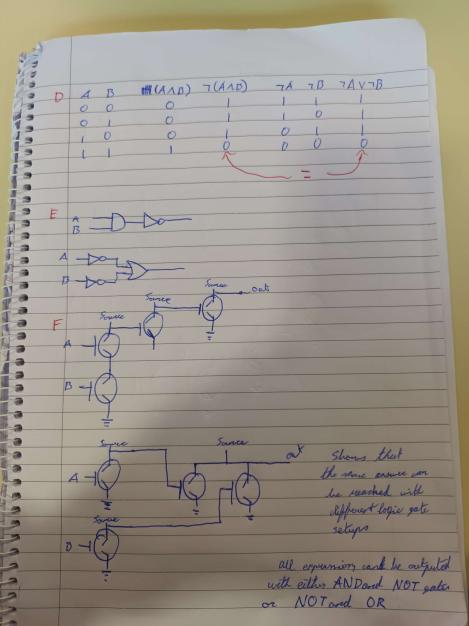 D A B (A∧B) ¬(A∧B) ¬A ¬B ¬A∨¬B
0 0 0 1 1 1 1
0 1 0 1 1 0 1
1 0 0 1 0 1 1
1 1 1 0 0 0 0
=
E
A
B
A
B
Source
Source
Source out
F
A
B
Source
Source
out
A
Source
B
Shows that
the same answer can
be reached with
different logic gate
setups
all expression can be outputed
with either AND and NOT gates
or NOT and OR